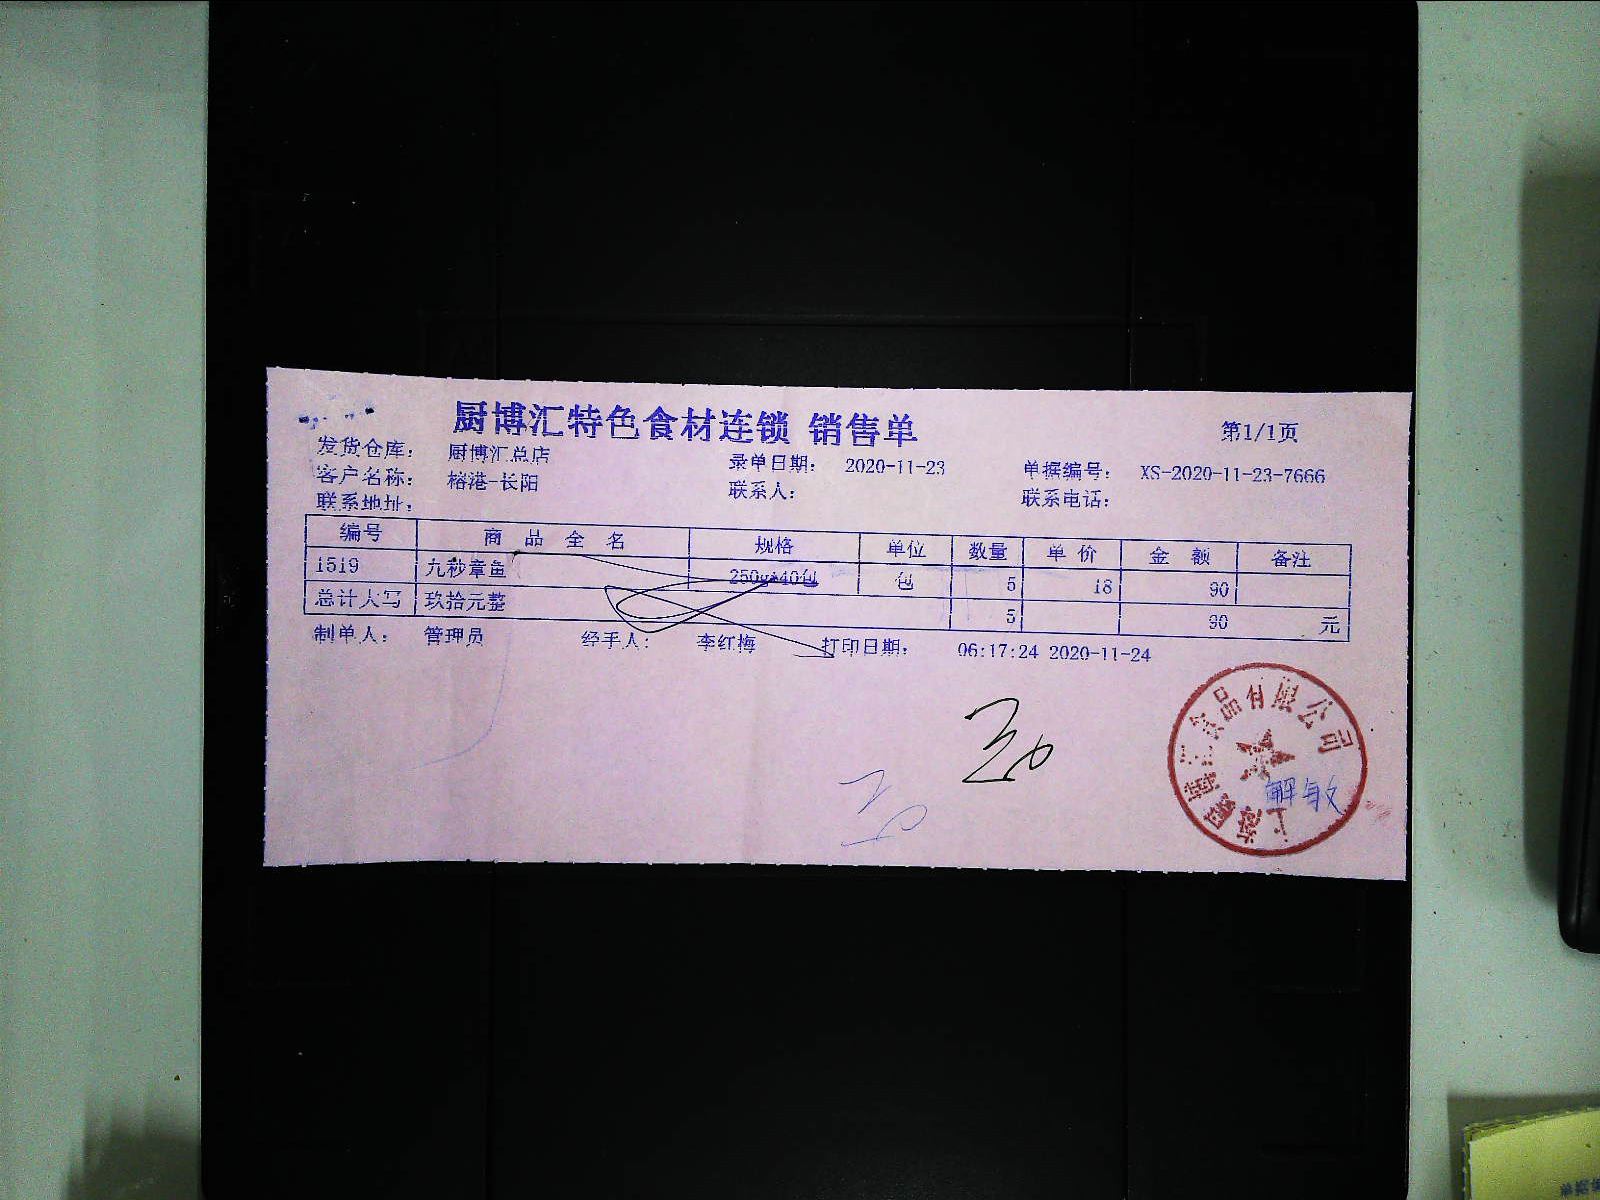 厨博汇特色食材连锁 销售单 第1/1页
发货仓库： 厨博汇总店 录单日期： 2020-11-23 单据编号： XS-2020-11-23-7666
客户名称： 榕港-长阳 联系人： 联系电话：
联系地址：
编号 商品全名 规格 单位 数量 单价 金额 备注
1519 九秒章鱼 250g*40包 包 5 18 90
总计大写 玖拾元整 5 90 元
制单人： 管理员 经手人： 李红梅 打印日期： 06:17:24 2020-11-24
上海厨博汇食品有限公司
解敏